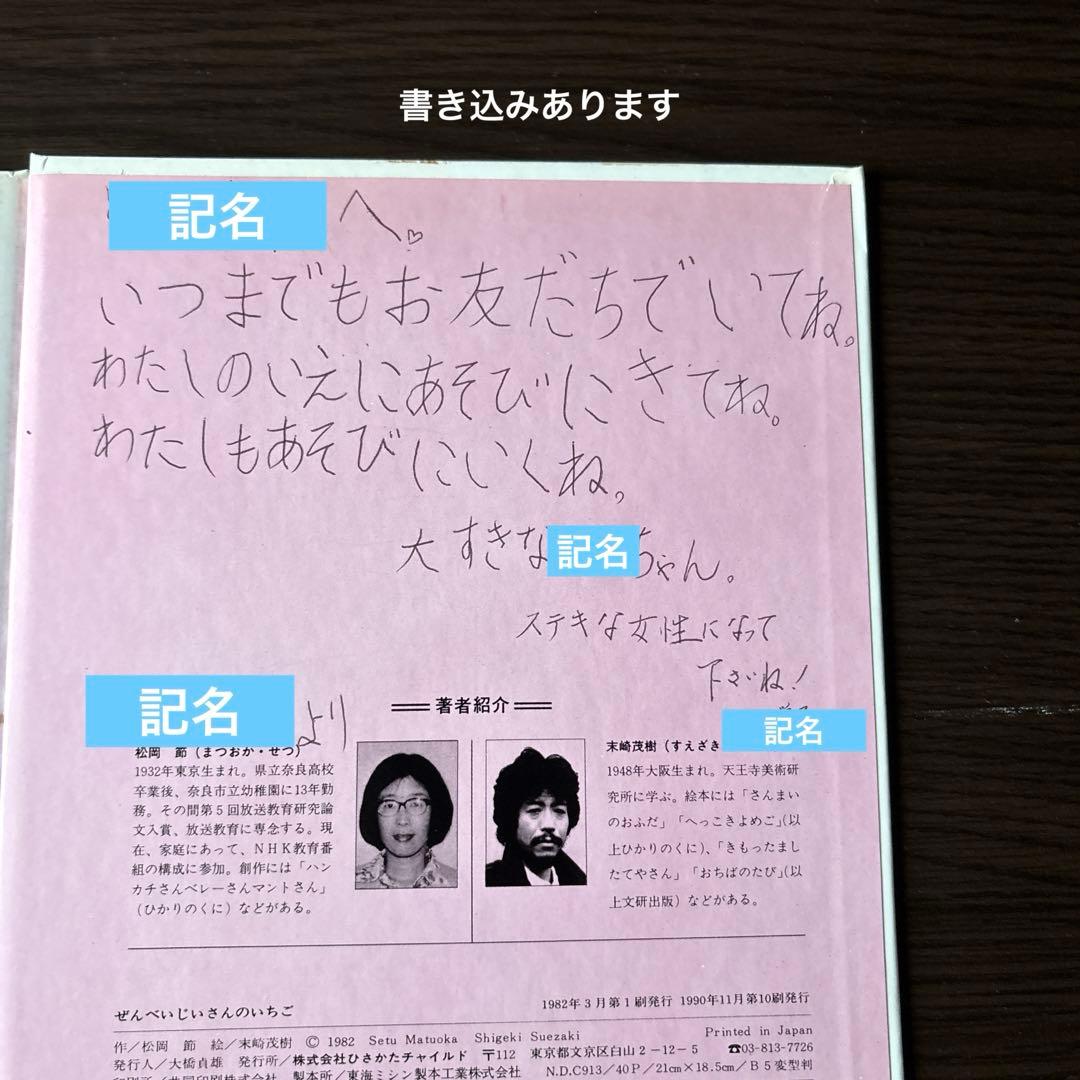 書き込みあります
記名 へ。
いつまでもお友だちでいてね。
わたしのいえにあそびにきてね。
わたしもあそびにいくね。
大すきな 記名 ちゃん。
ステキな女性になって
下さいね!
記名
記名 より
著者紹介
松岡 節(まつおか・せつ)
1932年東京生まれ。県立奈良高校
卒業後、奈良市立幼稚園に13年勤
務。その間第5回放送教育研究論
文入賞、放送教育に専念する。現
在、家庭にあって、NHK教育番
組の構成に参加。創作には「ハン
カチさんベレーさんマントさん」
(ひかりのくに)などがある。
末崎茂樹(すえざき
1948年大阪生まれ。天王寺美術研
究所に学ぶ。絵本には「さんまい
のおふだ」「へっこきよめご」(以
上ひかりのくに)、「きもったまし
たてやさん」「おちばのたび」(以
上文研出版)などがある。
ぜんべいじいさんのいちご
1982年3月第1刷発行 1990年11月第10刷発行
作/松岡 節 絵/末崎茂樹 © 1982 Setu Matuoka Shigeki Suezaki Printed in Japan
発行人/大橋貞雄 発行所/株式会社ひさかたチャイルド 〒112 東京都文京区白山2-12-5 ☎03-813-7726
印刷所/共同印刷株式会社 製本所/東海ミシン製本工業株式会社 N.D.C913/40P/21cm×18.5cm/B5変型判